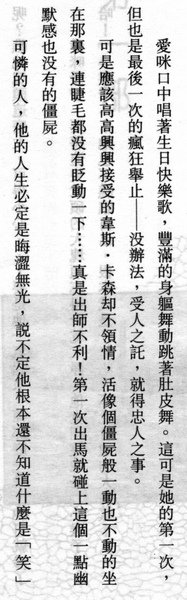 愛咪口中唱著生日快樂歌，豐滿的身軀舞動跳著肚皮舞。這可是她的第一次，
但也是最後一次的瘋狂舉止——没辦法，受人之託，就得忠人之事。
可是應該高高興興接受的韋斯・卡森却不領情，活像個僵屍般一動也不動的坐
在那裏，連睫毛都没有眨動一下……真是出師不利！第一次出馬就碰上這個一點幽
默感也没有的僵屍。
可憐的人，他的人生必定是晦澀無光，説不定他根本還不知道什麼是「笑」